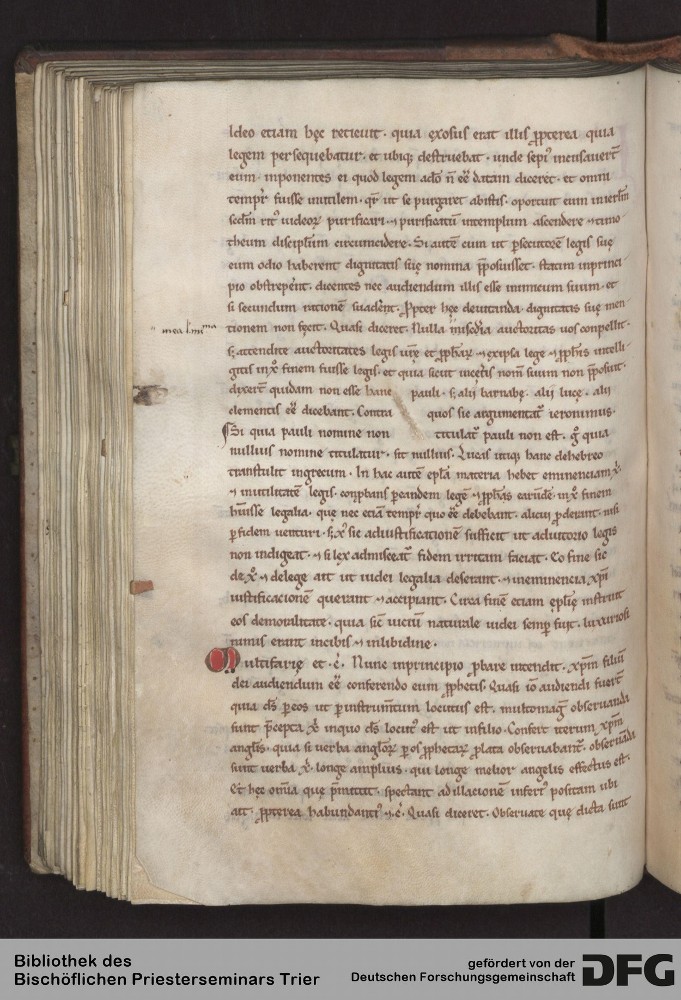 Ideo etiam hęc reticuit · quia exosus erat illis ꝓpterea quia
legem persequebatur · et ubiq; destruebat · unde sepi᷒ incusauert̄
eum · inponentes ei quod legem adō n̄ eē datam diceret · et omni
tempr̄ fuisse inutilem · qr̄ ut se purgaret abistis · oportuit eum
scdm rit᷒ uideoꝝ purificari · ⁊ purificatū intemplum ascendere ⁊ timo
theum discipl̄um circumcidere · Si autē cum ut ꝑsecutorē legis suę
eum odio haberent dignitatis suę nomina p̄posuisset · statim inprinci
pio obstreper̄nt · dicentes nec audiendum illis esse inimicum suum · et
si secundum rationē suader̄et · Ꝓpter hęc deuitanda · dignitatis suę men
tionem non fecit · Quasi diceret · Nulla auctoritas uos conpellit ·
s; attendite auctoritates legis ur̄ę et ꝓph̄aꝝ · ⁊ exipsa lege ⁊ ꝓph̄is intelli
gitis inx̄o finem fuisse legis · et quia sicut incęt̄is nom̄ suum non p̄posuit ·
dixer̄t quidam non esse hanc pauli · s; alii barnabę · alii lucę · alii
clementis eē dicebant · Contra quos sic argumentat᷒ ieronimus ·
Si quia pauli nomine non titulat᷒ pauli non est · g̊ quia
nullius nomine titulatur · sit nullius · Lucas itaq; hanc dehebreo
transtulit ingrecum · In hac autē epl̄a materia habet eminenciam x̄ ·
⁊ inutilitatē legis · conprobans ꝑeandem legē ⁊ ꝓph̄as earundē · inx̄o finem
huisse legalia · quę nec etiā tempr̄ quo eē debebant · alicui ꝓderant · nisi
ꝑfidem uenturi · s; x̄ sic adiustificationē sufficit ut adiutorio legis
non indigeat · ⁊ si lex admisceat᷒ fidem irritam faciat · Eo fine sic
de x̄o ⁊ delege ait ut iudei legalia deserant · ⁊ ineminencia xp̄i
iustificacionē querant ⁊ accipiant · Circa finē etiam epl̄ę instruit
eos demoralitate · quia sic̄ uiciū naturale iudei semp̄ fuit · luxuriosi
nimis erant incibis ⁊ inlibidine ·
Multifarię et · c̄ · Nunc inprincipio ꝓbare intendit · xp̄m filiū
dei audiendum eē conferendo eum ꝓphetis · Quasi iō audiendi fuer̄t
quia d̄s ꝑeos ut ꝑinstrum̄tum locutus est · multomag᷒ obseruanda
sunt p̄cepta x̄ inquo d̄s locut᷒ est ut infilio · Confert iterum xp̄m
angl̄is · quia si uerba angl̄oꝝ ꝑos ꝓphetaꝝ ꝓlata obseruabant᷒ · obseruāda
sunt uerba x̄ · longe amplius · qui longe melior angelis effectus est ·
Et hęc om̄ia quę p̄mittit · spectant adillacionē infert positam ubi
ait · ꝓpterea habundanti᷒ ⁊ · c̄ · Quasi diceret · Obseruate quę dicta sunt
Bibliothek des
Bischöflichen Priesterseminars Trier
gefördert von der
Deutschen Forschungsgemeinschaft
DFG